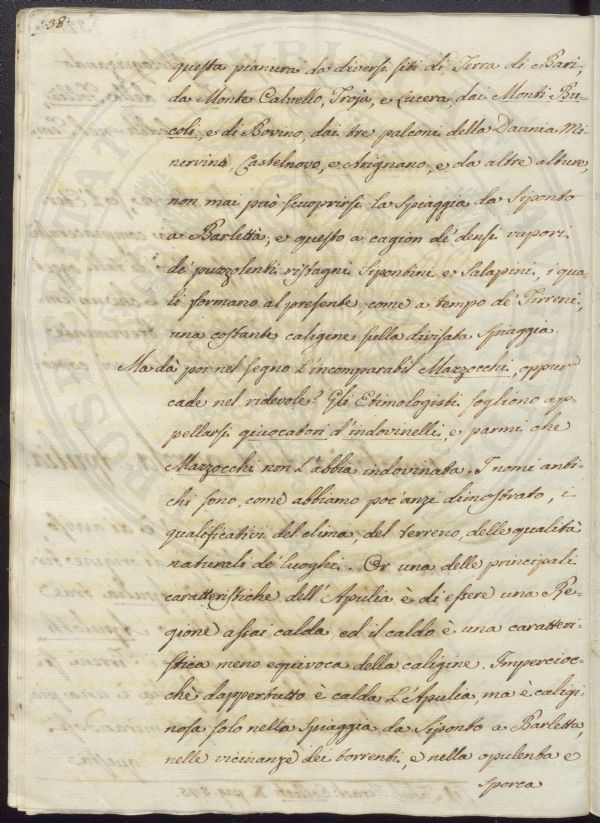 38.
questa pianura da diversi siti di Terra di Bari,
da Monte Calvello, Troja, e Lucera, dai Monti Bu-
coli, e di Bovino, dai tre palconi della Daunia Mi-
nervino Castelnovo, e Arignano, e da altre alture,
non mai può scuoprirsi la spiaggia da Siponto
a Barletta; e questo a cagion de' densi vapori
de' puzzolenti ristagni Sipontini e Salapini, i qua-
li formano al presente, come a tempo de' Tirreni,
una costante caligine sulla divisata spiaggia.
Ma dà poi nel segno l'incomparabil Mazzocchi, oppur
cade nel ridevole? Gli Etimologisti sogliono ap-
pellarsi giuocatori d'indovinelli, e parmi che
Mazzocchi non l'abbia indovinata. I nomi anti-
chi sono, come abbiamo poc'anzi dimostrato, i
qualificativi del clima, del terreno, delle qualità
naturali de' luoghi. Or una delle principali
caratteristiche dell'Apulia è di essere una Re-
gione assai calda ed il caldo è una caratteri-
stica meno equivoca della caligine. Impercioc-
chè dapertutto è calda l'Apulia, ma è caligi-
nosa solo nella spiaggia da Siponto a Barletta,
nelle vicinanze dei torrenti, e nella opulenta e
sporca